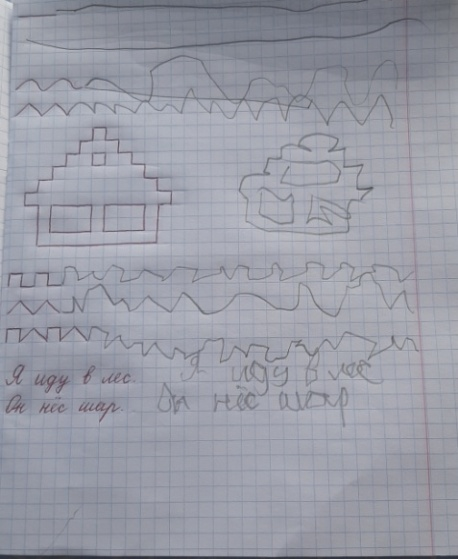 Я иду в лес. Я иду в лес
Он нёс шар. Он нёс шар